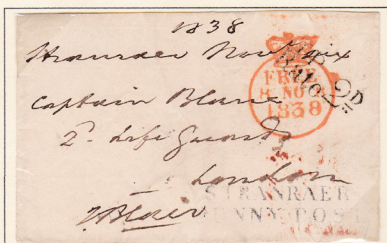 1838
Stranraer Nov six
Captain Blane
2d Life Guards
London
FREE
8 NO 8
1838
STRANRAER
PENNY POST